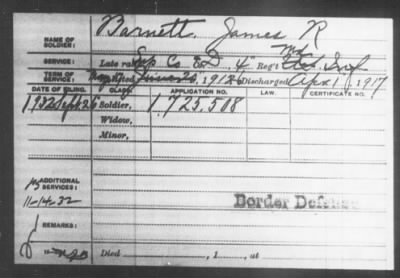 NAME OF SOLDIER: Barnett, James R
SERVICE: Late rank, Sup Co 4 Reg't Md Inf
TERM OF SERVICE: Enlisted June 26, 1916 Discharged Apr 1, 1917
DATE OF FILING. CLASS. APPLICATION NO. LAW. CERTIFICATE NO.
1932 Sept 26 Soldier, 1,725,508
Widow,
Minor,
ADDITIONAL SERVICES:
11-14-32
Border Defense
REMARKS:
Died , 1 , at